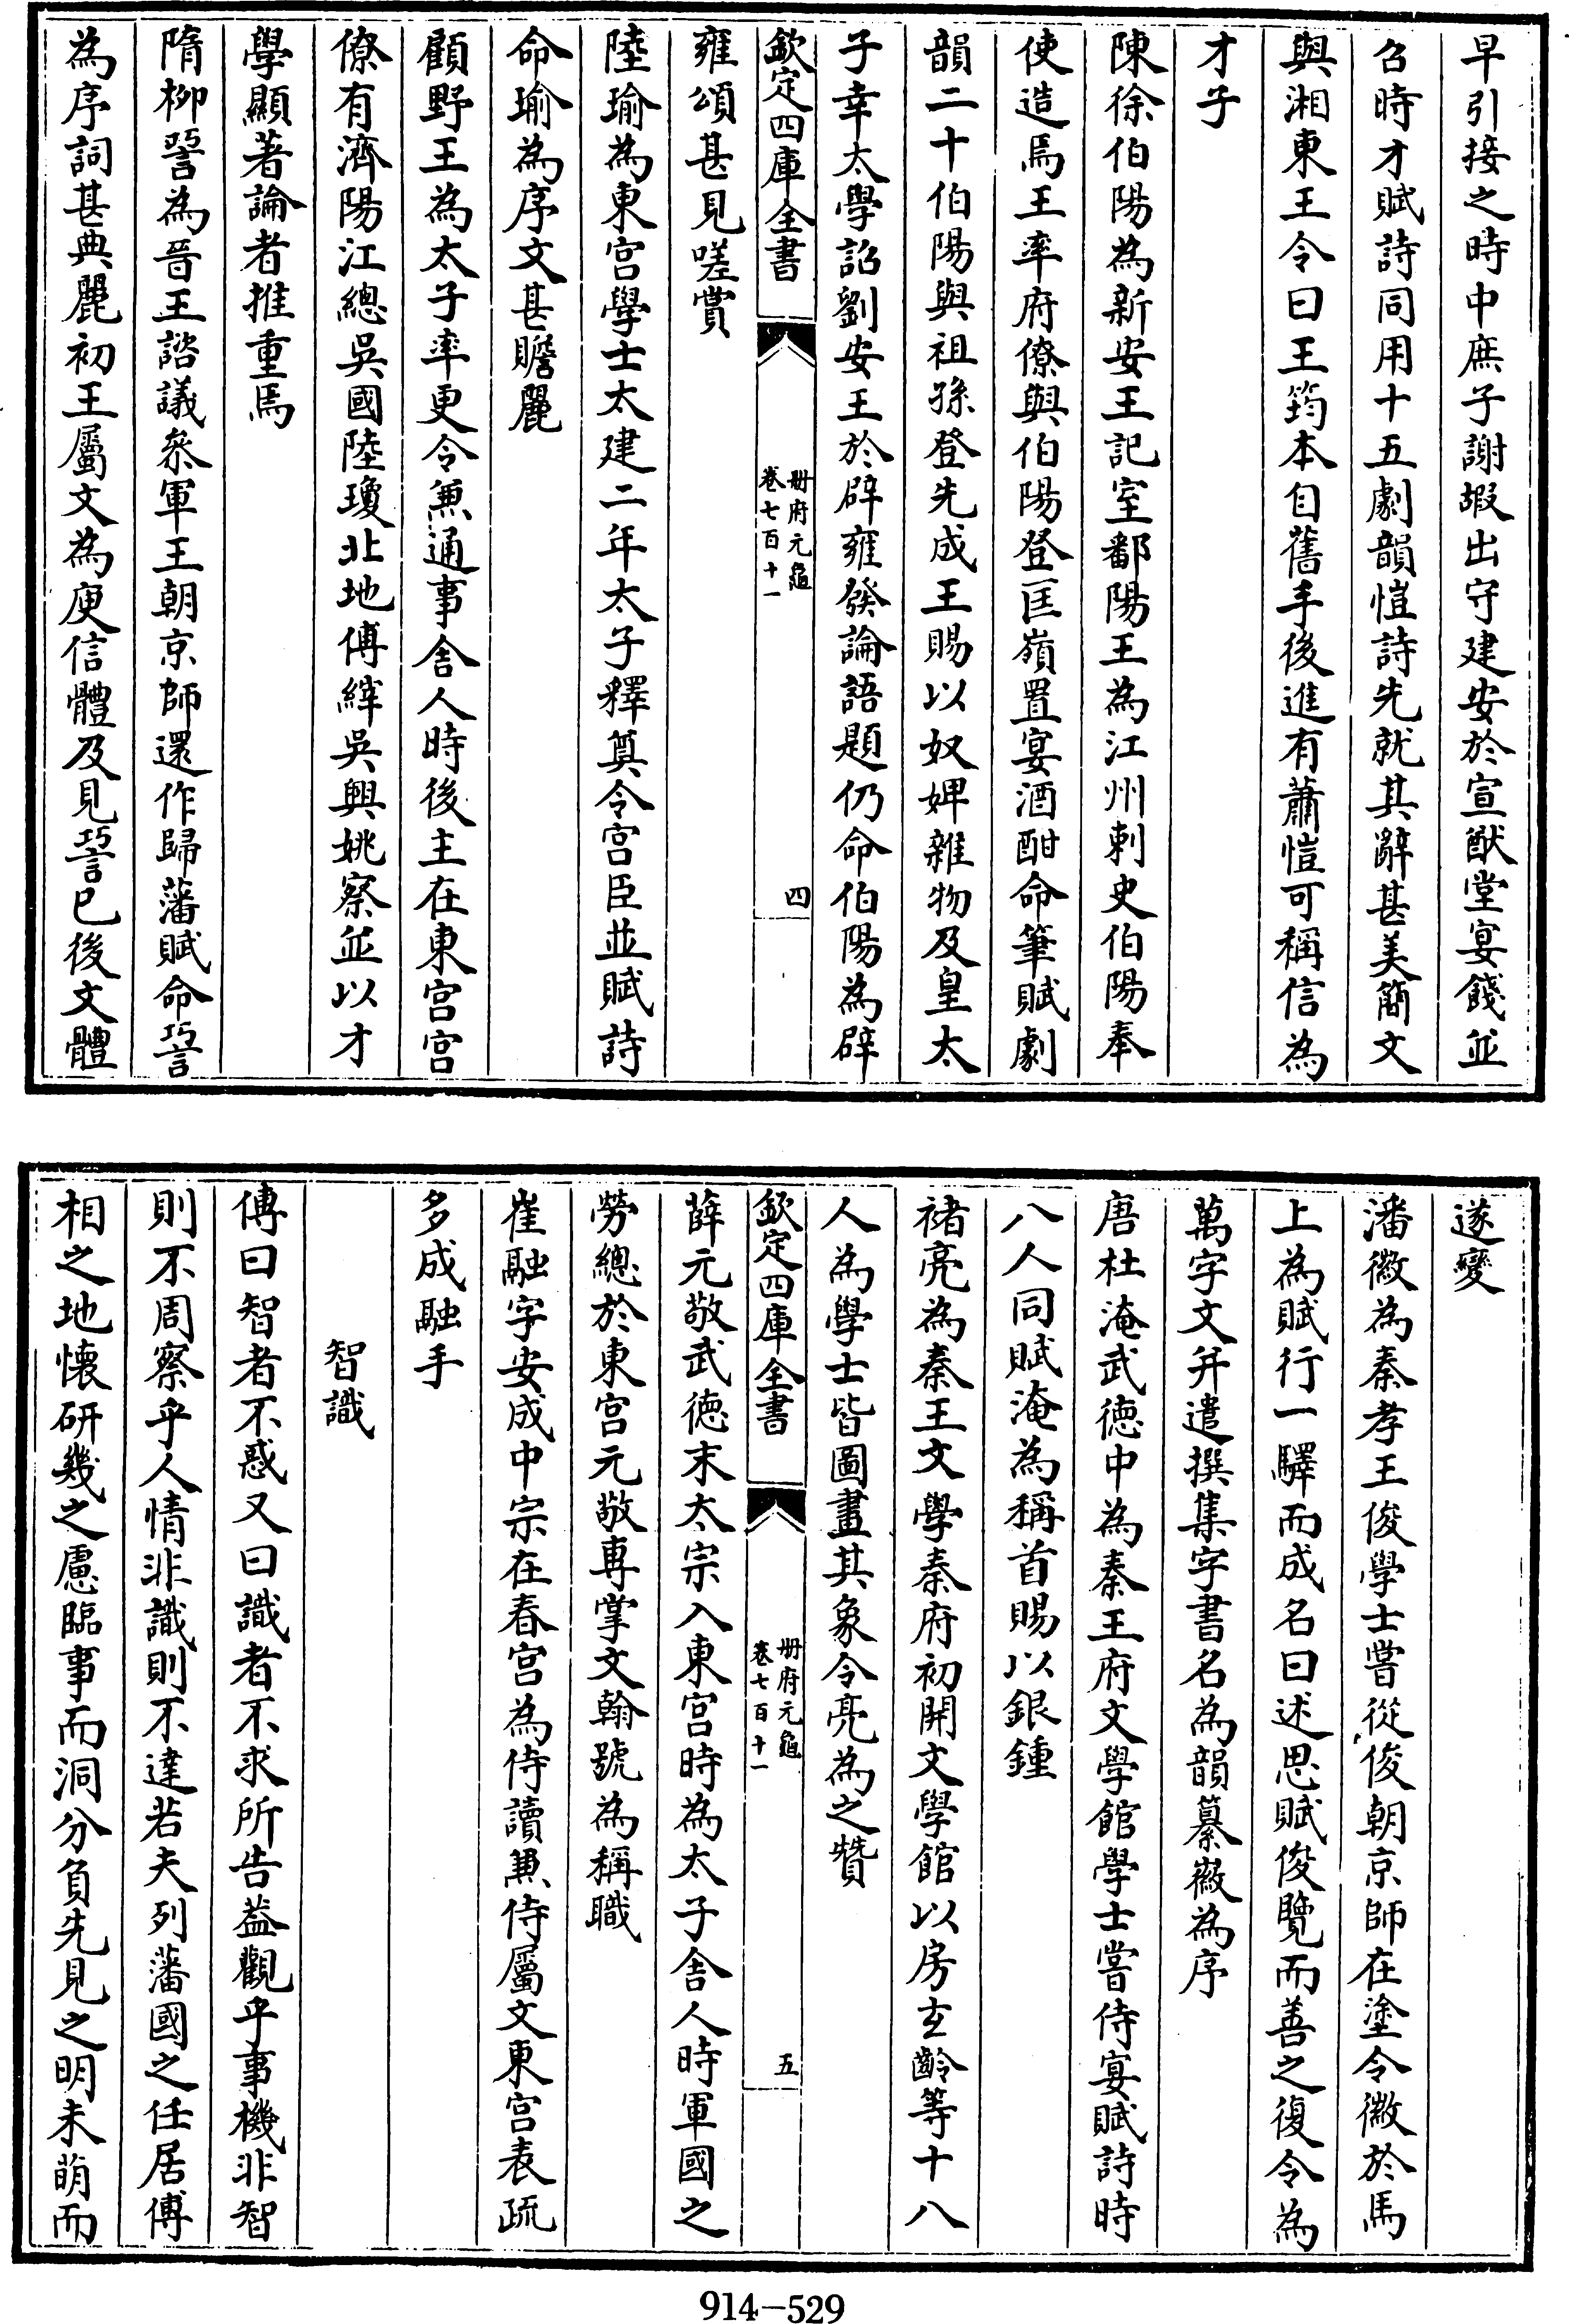 早引接之時中庶子謝嘏出守建安於宣猷堂宴餞並
召時才賦詩同用十五劇韻愷詩先就其辭甚美簡文
與湘東王令曰王筠本自舊手後進有蕭愷可稱信為
才子
陳徐伯陽為新安王記室鄱陽王為江州刺史伯陽奉
使造焉王率府僚與伯陽登匡嶺置宴酒酣命筆賦劇
韻二十伯陽與祖孫登先成王賜以奴婢雜物及皇太
子幸太學詔劉安王於辟雍發論語題仍命伯陽為辟
欽定四庫全書
冊府元龜
卷七百十一
四
雍頌甚見嗟賞
陸瑜為東宮學士太建二年太子釋奠令宮臣並賦詩
命瑜為序文甚贍麗
顧野王為太子率更令兼通事舍人時後主在東宮宮
僚有濟陽江總吳國陸瓊北地傅縡吳興姚察並以才
學顯著論者推重焉
隋柳䛒為晉王諮議叅軍王朝京師還作歸藩賦命䛒
為序詞甚典麗初王屬文為庾信體及見䛒已後文體
遂變
潘徽為秦孝王俊學士嘗從俊朝京師在塗令徽於馬
上為賦行一驛而成名曰述思賦俊覽而善之復令為
萬字文并遣撰集字書名為韻纂徽為序
唐杜淹武德中為秦王府文學館學士嘗侍宴賦詩時
八人同賦淹為稱首賜以銀鍾
褚亮為秦王文學秦府初開文學館以房玄齡等十八
人為學士皆圖畫其象令亮為之贊
欽定四庫全書
冊府元龜
卷七百十一
五
薛元敬武德末太宗入東宮時為太子舍人時軍國之
勞總於東宮元敬專掌文翰號為稱職
崔融字安成中宗在春宮為侍讀兼侍屬文東宮表疏
多成融手
智識
傳曰智者不惑又曰識者不求所告蓋觀乎事機非智
則不周察乎人情非識則不達若夫列藩國之任居傅
相之地懷研幾之慮臨事而洞分負先見之明未萌而
914-529